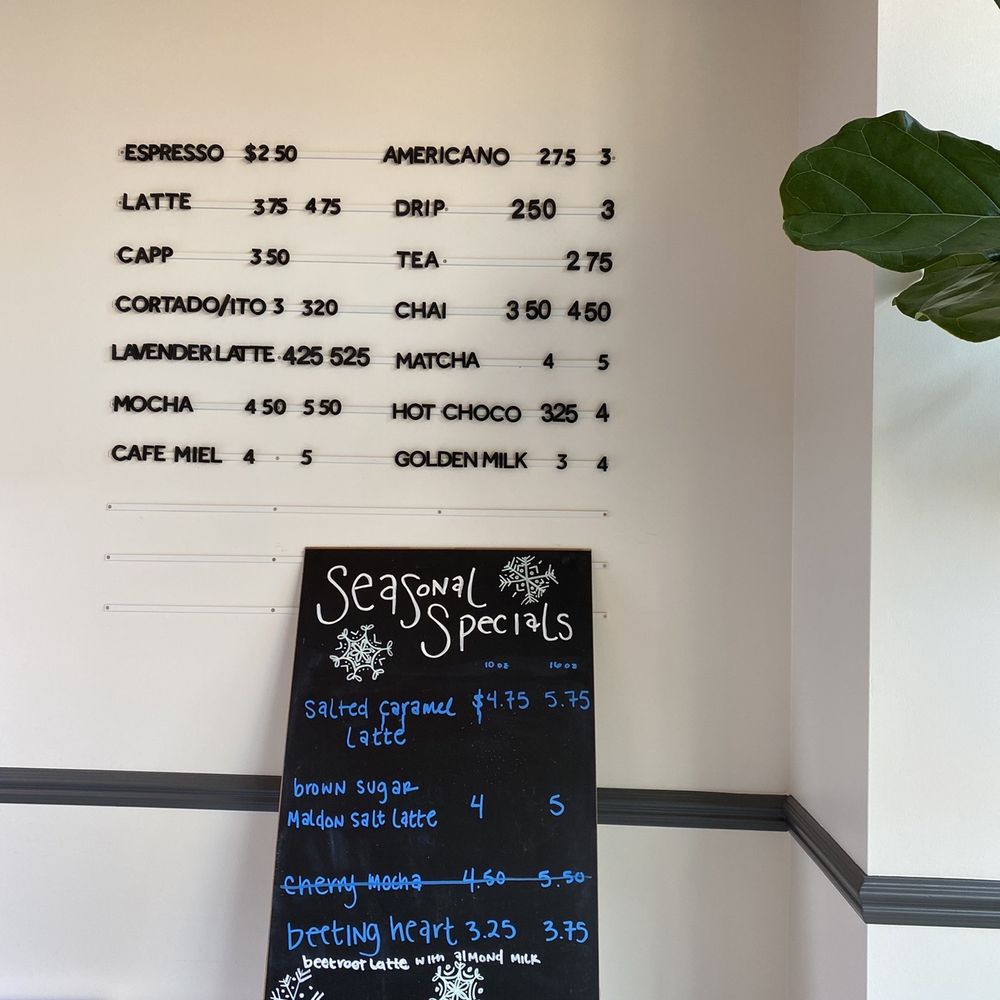 ESPRESSO $2 50
LATTE 3 75 4 75
CAPP 3 50
CORTADO/ITO 3 3 20
LAVENDER LATTE 4 25 5 25
MOCHA 4 50 5 50
CAFE MIEL 4 5
AMERICANO 2 75 3
DRIP 2 50 3
TEA 2 75
CHAI 3 50 4 50
MATCHA 4 5
HOT CHOCO 3 25 4
GOLDEN MILK 3 4
Seasonal
Specials
10 oz 16 oz
salted caramel $4.75 5.75
latte
brown sugar
Maldon salt latte 4 5
cherry mocha 4.50 5.50
beeting heart 3.25 3.75
beetroot latte with almond milk